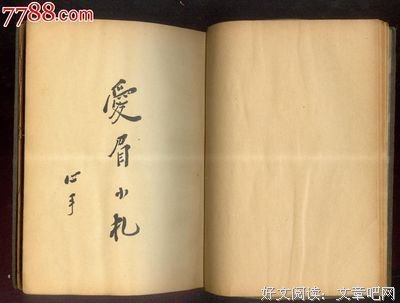 7788.com
愛眉小札
心手
好文阅读: 文章吧网